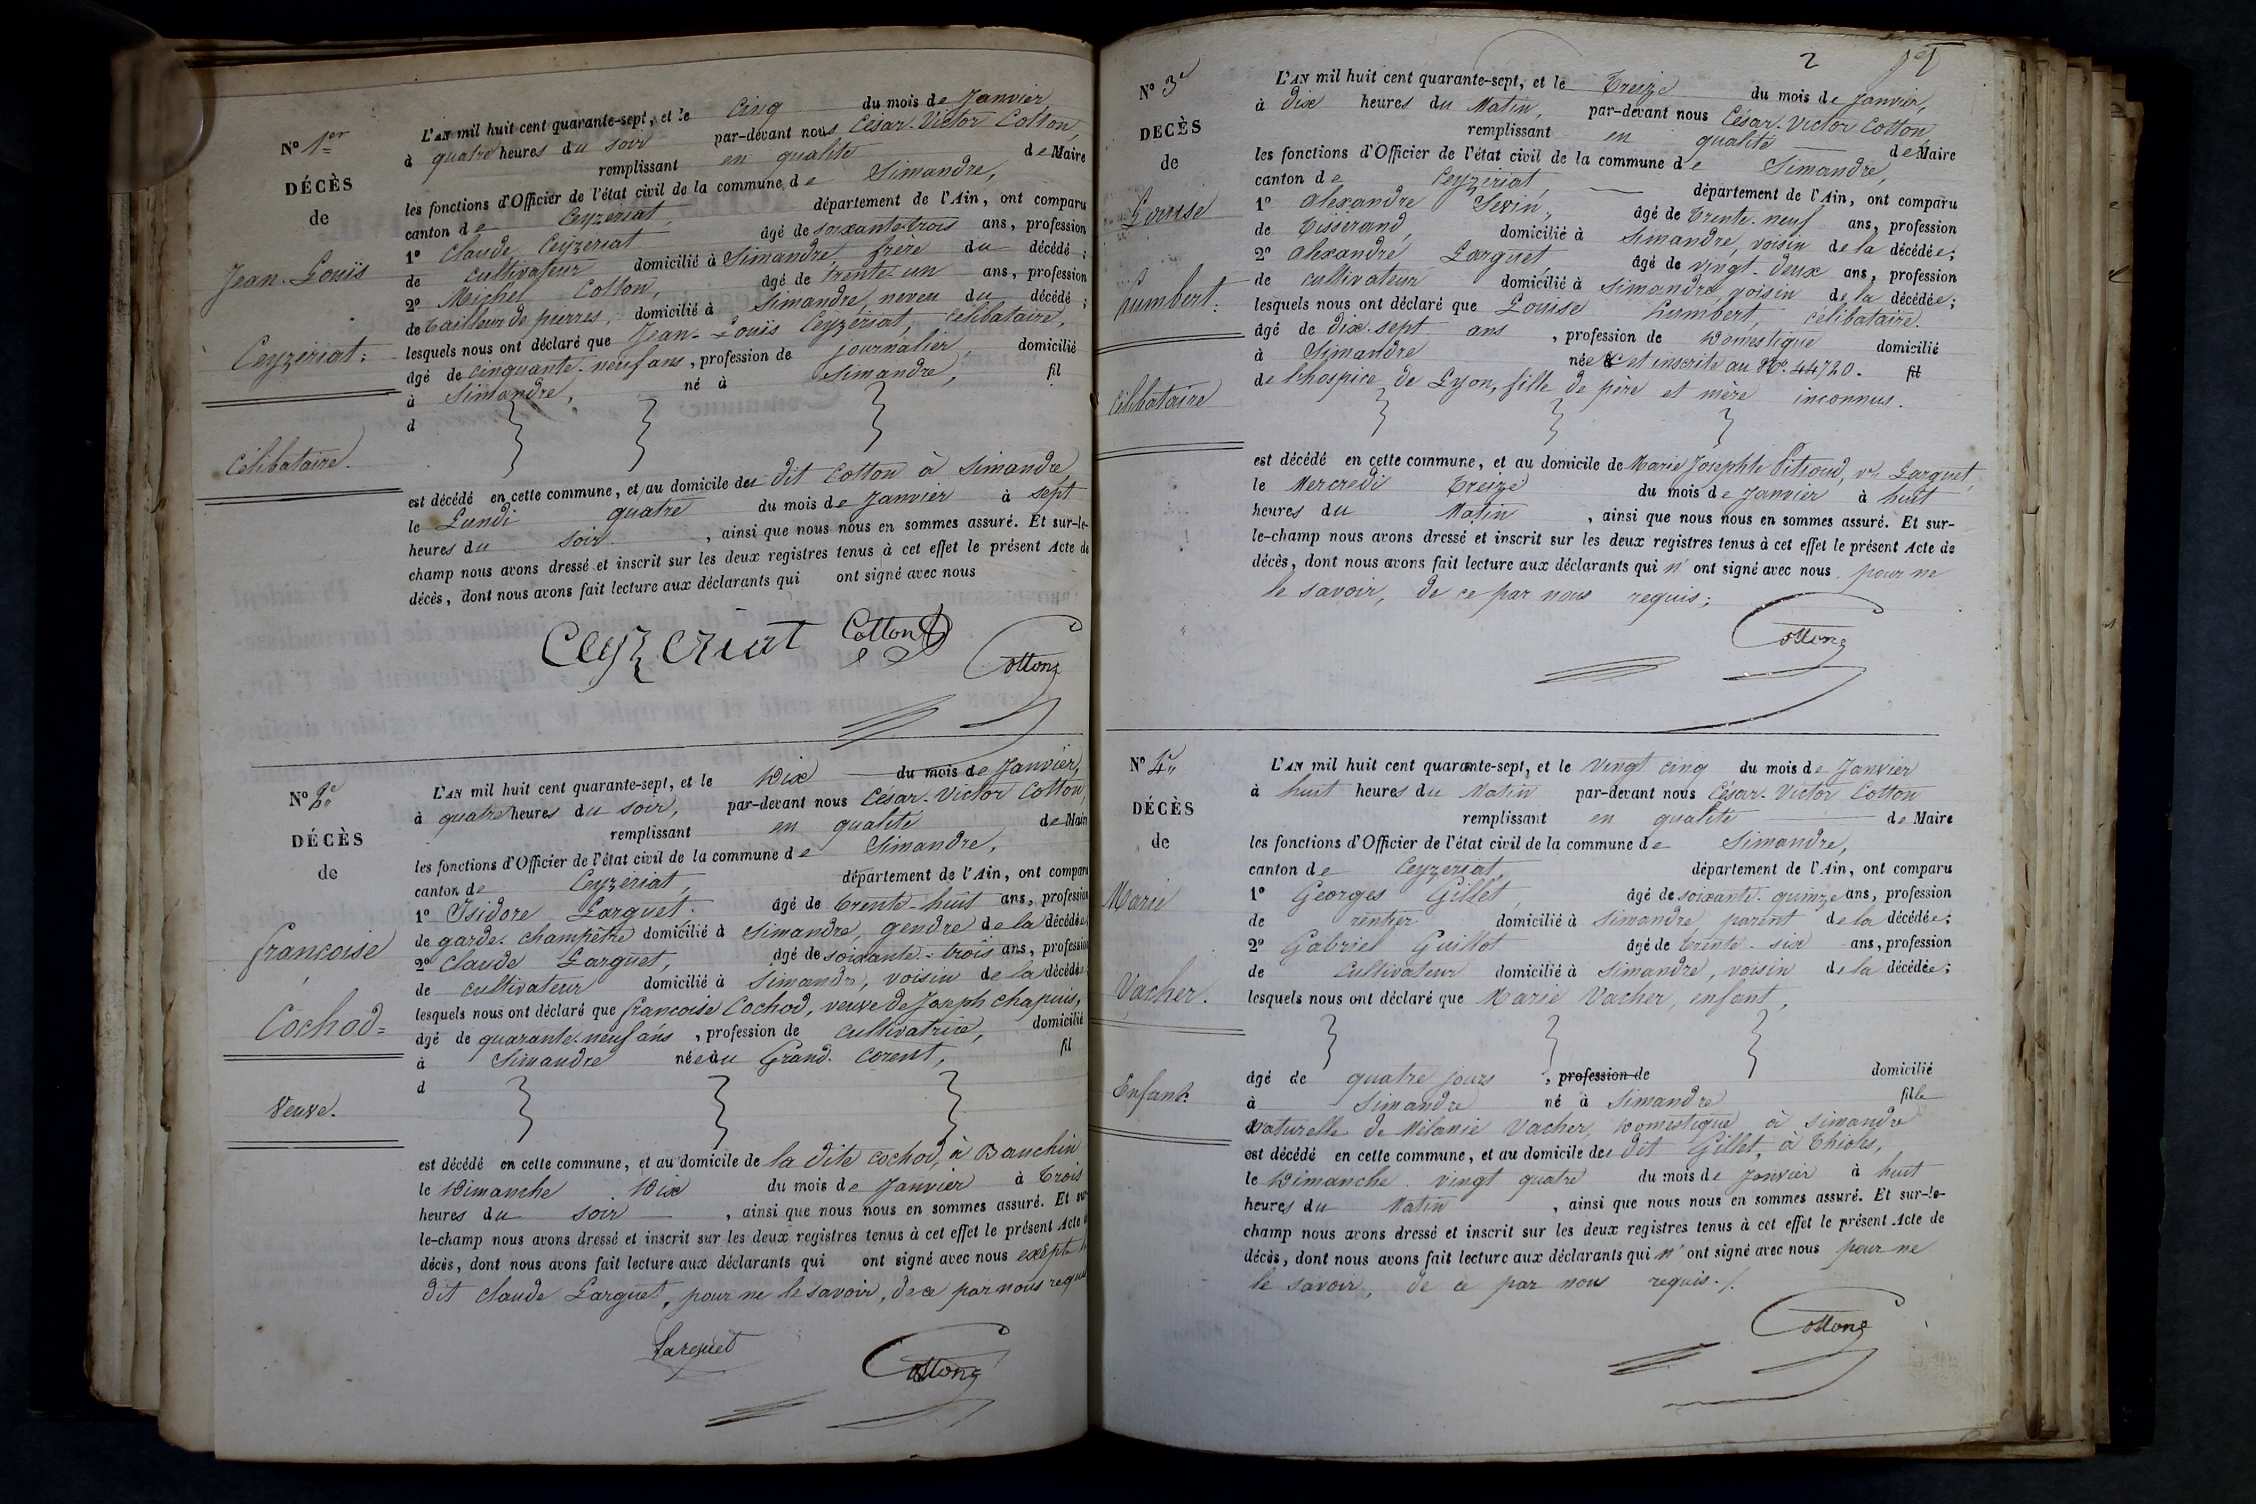 N° 1er
DÉCÈS
de
Jean-Louis
Ceyzériat:
Célibataire.
L'AN mil huit cent quarante-sept, et le Cinq du mois de Janvier,
à quatre heures du soir par-devant nous César-Victor Cotton,
remplissant en qualité de Maire
les fonctions d'Officier de l'état civil de la commune de Simandre,
canton de Ceyzeriat, département de l'Ain, ont comparu
1° Claude Ceyzeriat âgé de soixante-trois ans, profession
de cultivateur domicilié à Simandre, frère du décédé;
2° Michel Cotton, âgé de trente-un ans, profession
de tailleur de pierres, domicilié à Simandre, neveu du décédé;
lesquels nous ont déclaré que Jean-Louis Ceyzériat, célibataire,
âgé de cinquante-neuf ans, profession de journalier domicilié
à Simandre, né à Simandre, fil
d
est décédé en cette commune, et au domicile du dit Cotton à Simandre,
le Lundi quatre du mois de Janvier à sept
heures du soir, ainsi que nous nous en sommes assuré. Et sur-le-
champ nous avons dressé et inscrit sur les deux registres tenus à cet effet le présent Acte de
décès, dont nous avons fait lecture aux déclarants qui ont signé avec nous
Ceyzeriat Cotton
Cotton
N° 2e
DÉCÈS
de
Françoise
Cochod=
Veuve.
L'AN mil huit cent quarante-sept, et le Dix du mois de Janvier,
à quatre heures du soir, par-devant nous César-Victor Cotton,
remplissant en qualité de Maire
les fonctions d'Officier de l'état civil de la commune de Simandre,
canton de Ceyzériat, département de l'Ain, ont comparu
1° Isidore Larguet. âgé de trente-huit ans, profession
de garde-champêtre domicilié à Simandre, gendre de la décédée
2° Claude Larguet, âgé de soixante-trois ans, profession
de cultivateur domicilié à Simandre, voisin de la décédée
lesquels nous ont déclaré que Françoise Cochod, veuve de Joseph Chapuis,
âgé de quarante-neuf ans, profession de cultivatrice, domicilié
à Simandre née au Grand-Corent, fil
d
est décédé en cette commune, et au domicile de la dite Cochod, à Banchin
le Dimanche Dix du mois de Janvier à trois
heures du soir, ainsi que nous nous en sommes assuré. Et sur
le-champ nous avons dressé et inscrit sur les deux registres tenus à cet effet le présent Acte
décès, dont nous avons fait lecture aux déclarants qui ont signé avec nous excepté
dit Claude Larguet, pour ne le savoir, de ce par nous requis
Larguet
Cotton
2
N° 3e
DECÈS
de
Louise
Humbert:
Célibataire
L'AN mil huit cent quarante-sept, et le Treize du mois de Janvier,
à dix heures du Matin, par-devant nous César-Victor Cotton
remplissant en qualité de Maire
les fonctions d'Officier de l'état civil de la commune de Simandre,
canton de Ceyzériat, département de l'Ain, ont comparu
1° Alexandre Sevin, âgé de trente-neuf ans, profession
de Tisserand, domicilié à Simandre, voisin de la décédée;
2° Alexandre Larguet âgé de vingt-deux ans, profession
de cultivateur domicilié à Simandre, voisin de la décédée;
lesquels nous ont déclaré que Louise Humbert, célibataire.
âgé de dix-sept ans, profession de Domestique domicilié
à Simandre née et inscrite au N°. 44720. fil
de l'hospice de Lyon, fille de père et mère inconnus.
est décédé en cette commune, et au domicile de Marie Josephte Pitioud, ve Larguet,
le Mercredi Treize du mois de Janvier à huit
heures du Matin, ainsi que nous nous en sommes assuré. Et sur-
le-champ nous avons dressé et inscrit sur les deux registres tenus à cet effet le présent Acte de
décès, dont nous avons fait lecture aux déclarants qui n'ont signé avec nous pour ne
le savoir, de ce par nous requis;
Cotton
N° 4e
DÉCÈS
de
Marie
Vacher.
Enfant.
L'AN mil huit cent quarante-sept, et le Vingt cinq du mois de Janvier
à huit heures du Matin par-devant nous César-Victor Cotton
remplissant en qualité de Maire
les fonctions d'Officier de l'état civil de la commune de Simandre,
canton de Ceyzeriat, département de l'Ain, ont comparu
1° Georges Gillet, âgé de soixante-quinze ans, profession
de rentier domicilié à Simandre, parent de la décédée;
2° Gabriel Guillot âgé de trente-six ans, profession
de cultivateur domicilié à Simandre, voisin de la décédée;
lesquels nous ont déclaré que Marie Vacher, enfant,
âgé de quatre jours, profession de domicilié
à Simandre né à Simandre fille
naturelle de Mélanie Vacher, Domestique à Simandre
est décédé en cette commune, et au domicile du dit Gillet, à Thioles,
le Dimanche vingt quatre du mois de Janvier à huit
heures du Matin, ainsi que nous nous en sommes assuré. Et sur-le-
champ nous avons dressé et inscrit sur les deux registres tenus à cet effet le présent Acte de
décès, dont nous avons fait lecture aux déclarants qui n'ont signé avec nous pour ne
le savoir, de ce par nous requis./.
Cotton